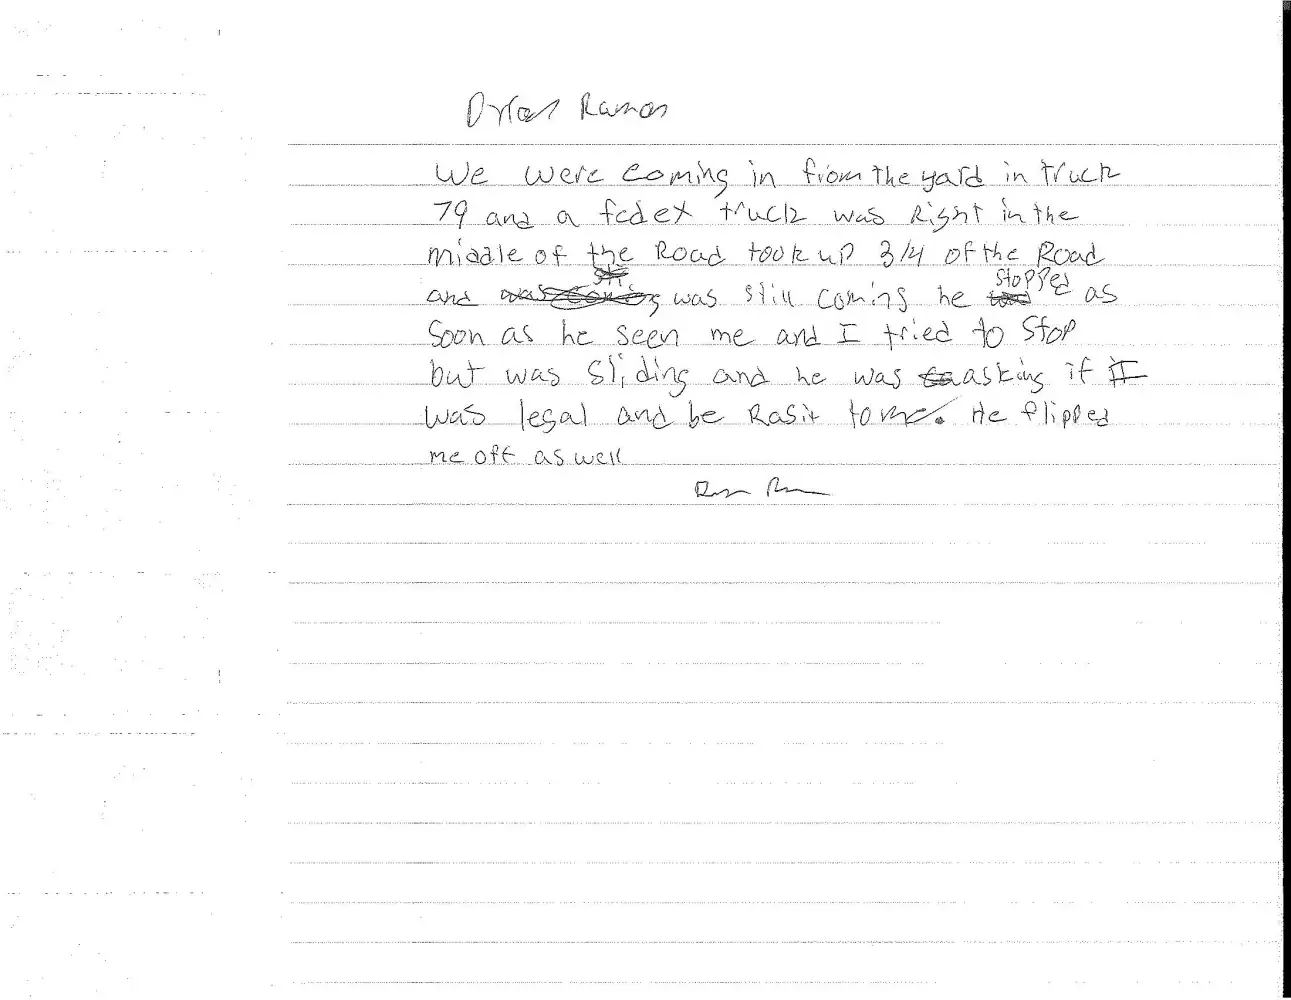 Dylan Ramon
We were coming in from the yard in truck
79 and a fedex truck was Right in the
middle of the Road took up 3/4 of the Road
and was still coming he stopped as
Soon as he seen me and I tried to Stop
but was Sliding and he was asking if I
was legal and be Rasit to me. He flipped
me off as well